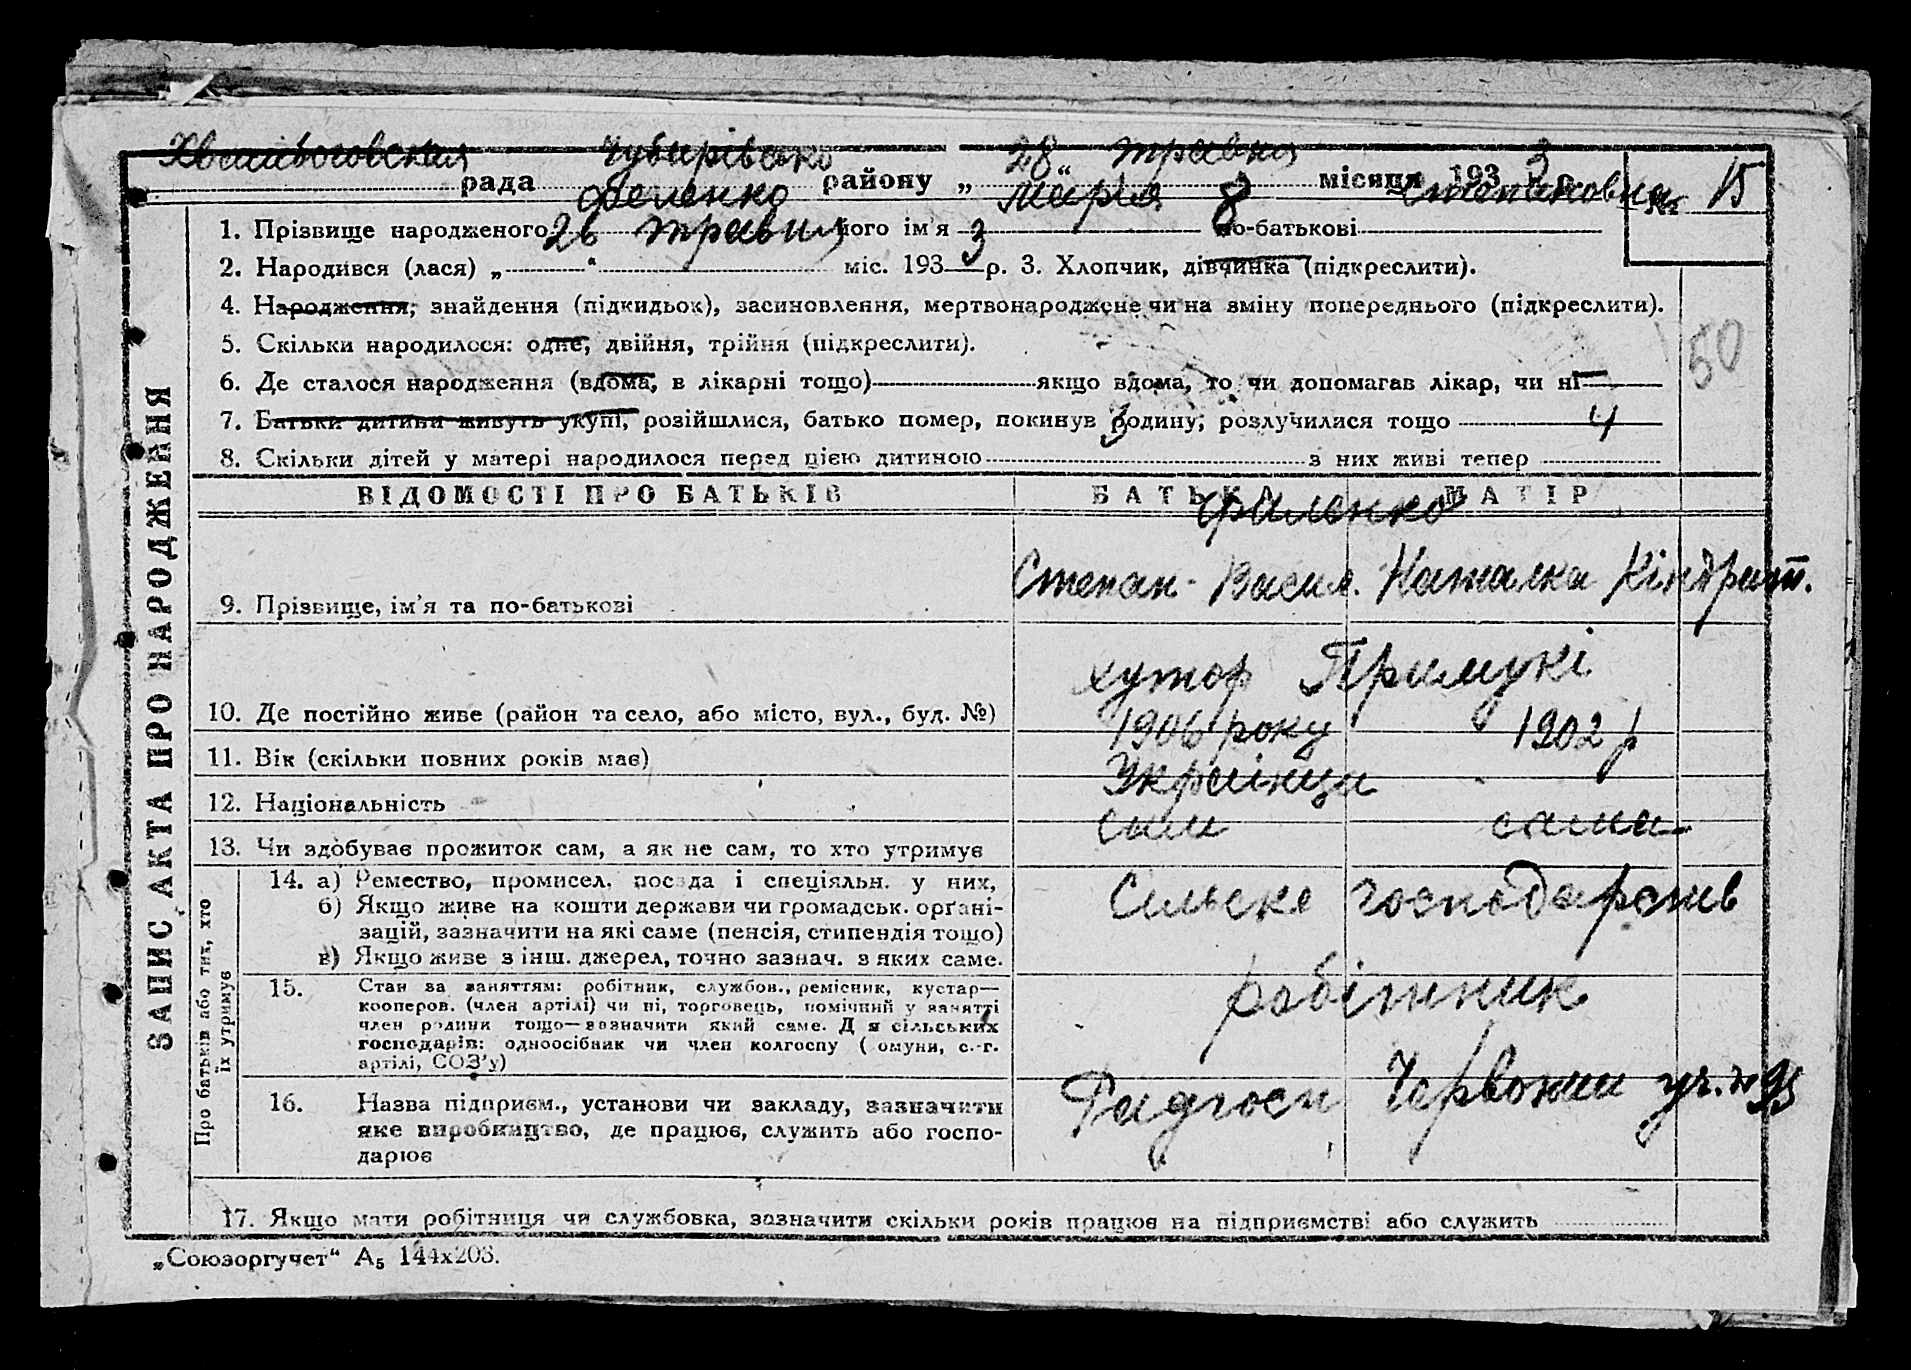 Чубарівсько 28 травня 3
рада району „ “ місяця 193 р.
Феленко Марія Степановна № 15
1. Прізвище народженого його ім'я по-батькові
26 травня 3
2. Народився (лася) „ “ міс. 193 р. 3. Хлопчик, дівчинка (підкреслити).
4. Народження, знайдення (підкидьок), засиновлення, мертвонароджене чи на зміну попереднього (підкреслити).
5. Скільки народилося: одне, двійня, трійня (підкреслити).
50
6. Де сталося народження (вдома, в лікарні тощо) якщо вдома, то чи допомагав лікар, чи ні
7. Батьки дитини живуть укупі, розійшлися, батько помер, покинув родину, розлучилися тощо
3 4
8. Скільки дітей у матері народилося перед цією дитиною з них живі тепер
ВІДОМОСТІ ПРО БАТЬКІВ БАТЬКО МАТІР
Филенко
Степан Васил. Наталка Кіндрат.
9. Прізвище, ім'я та по-батькові
хутор Примукі
10. Де постійно живе (район та село, або місто, вул., буд. №)
1906 року 1902 р
11. Вік (скільки повних років має)
Украінци
12. Національність
сам сама
13. Чи здобуває прожиток сам, а як не сам, то хто утримує
14. а) Ремество, промисел, посада і спеціяльн. у них,
б) Якщо живе на кошти держави чи громадськ. орґані-
зацій, зазначити на які саме (пенсія, стипендія тощо)
в) Якщо живе з інш. джерел, точно зазнач. з яких саме.
Сильске господарств
15. Стан за заняттям: робітник, службов., ремісник, кустар—
кооперов. (член артілі) чи ні, торговець, помічний у занятті
член родини тощо—зазначити який саме. Д я сільських
господарів: одноосібник чи член колгоспу ( омуни, с.-г.
артілі, СОЗ'у)
робітник
16. Назва підприєм., установи чи закладу, зазначити
яке виробництво, де працює, служить або госпо-
дарює
Радгосп Червоний уч. №95
17. Якщо мати робітниця чи службовка, зазначити скільки років працює на підприємстві або служить
ЗАПИС АКТА ПРО НАРОДЖЕННЯ
Про батьків або тих, хто
їх утримує
„Союзоргучет“ А₅ 144х203.